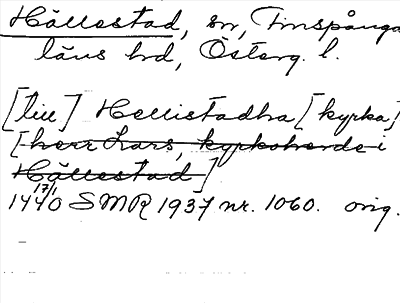 Hällestad, sn, Finspånga
läns hd, Österg. l.
[till] Hellistadha [kyrka]
[herr Lars, kyrkoherde i
Hällestad]
17/1
1440 SMR 1937 nr. 1060. orig.